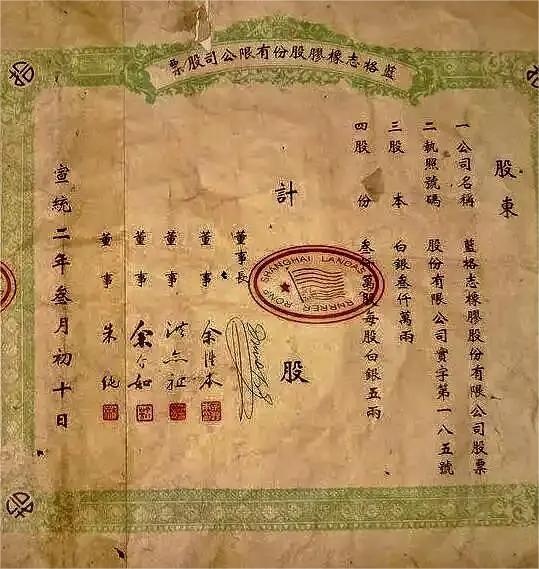 藍格志橡膠股份有限公司股票
股東
一公司名稱 藍格志橡膠股份有限公司股票
二執照號碼 股份有限公司實字第一八五號
三股本 白銀叁仟萬兩
四股份 叁萬股每股白銀五兩
計 股
SHANGHAI LANDAS
董事長
董事 余本
董事 洪
董事 余如
董事 朱純
宣統二年叁月初十日